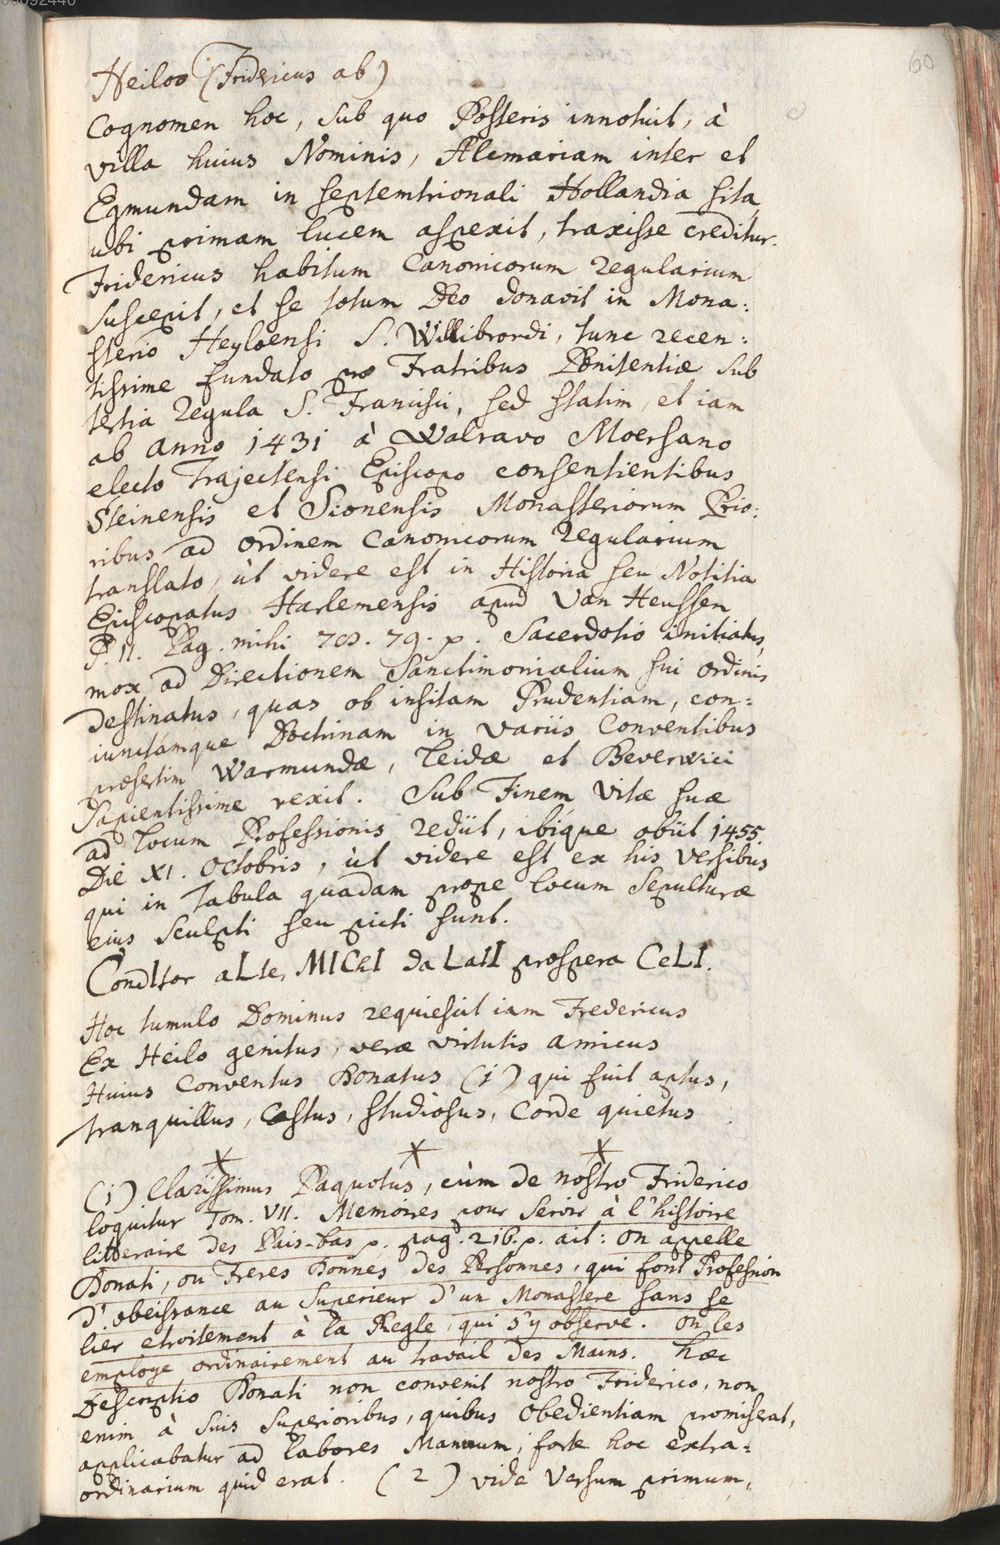 60
Heiloo (Fridericus ab)
Cognomen hoc, sub quo Posteris innotuit, à
villa huius Nominis, Alcmariam inter et
Egmundam in septemtrionali Hollandia sita,
ubi primam lucem aspexit, traxisse creditur.
Fridericus habitum Canonicorum Regularium
suscepit, et se totum Deo donavit in Mona:
sterio Heyloensi S. Willibrordi, tunc recen:
tissime fundato pro Fratribus Pœnitentiæ sub
tertia Regula S. Francisci, sed statim, et iam
ab anno 1431 à Walravo Moersano
electo Trajectensi Episcopo consentientibus
Steinensis et Sionensis Monasteriorum Prio:
ribus ad ordinem Canonicorum Regularium
translato, ùt videre est in Historia seu Notitia
Episcopatus Harlemensis apud Van Heussen
P. II. Pag. mihi 79. p. Sacerdotio initiatus,
mox ad Directionem Sanctimonialium sui ordinis
destinatus, quas ob insitam Prudentiam, con:
iunctamque Doctrinam in variis Conventibus
præsertim Warmundæ, Leidæ et Beverwici
Sapientissime rexit. Sub Finem Vitæ suæ
ad locum Professionis rediit, ibique obiit 1455
Die XI. Octobris, ùt videre est ex his versibus
qui in Tabula quadam prope locum Sepulturæ
eius sculpti seu picti sunt.
CondItor aLte, MIChI da LatI prospera CeLI.
Hoc tumulo Dominus requiescit iam Fredericus
Ex Heilo genitus, veræ virtutis amicus
Huius Conventus Donatus (1) qui fuit aptus,
tranquillus, Castus, studiosus, Corde quietus.
(1) Clarissimus Paquotus, cùm de nostro Friderico
loquitur Tom. VII. Memoires pour servir à l'histoire
litteraire des Païs-bas p. pag. 216. p. ait: on appelle
Donati, ou Freres Donnes des Personnes, qui font Profession
d'obeissance au Superieur d'un Monastere sans se
lier etroitement à la Regle, qui s'y observe. on les
employe ordinairement au travail des Mains. Hæc
Descriptio Donati non convenit nostro Friderico, non
enim à suis Superioribus, quibus Obedientiam promiserat,
applicabatur ad labores Manuum; forte hoc extra:
ordinarium quid erat. (2) vide Versum primum,